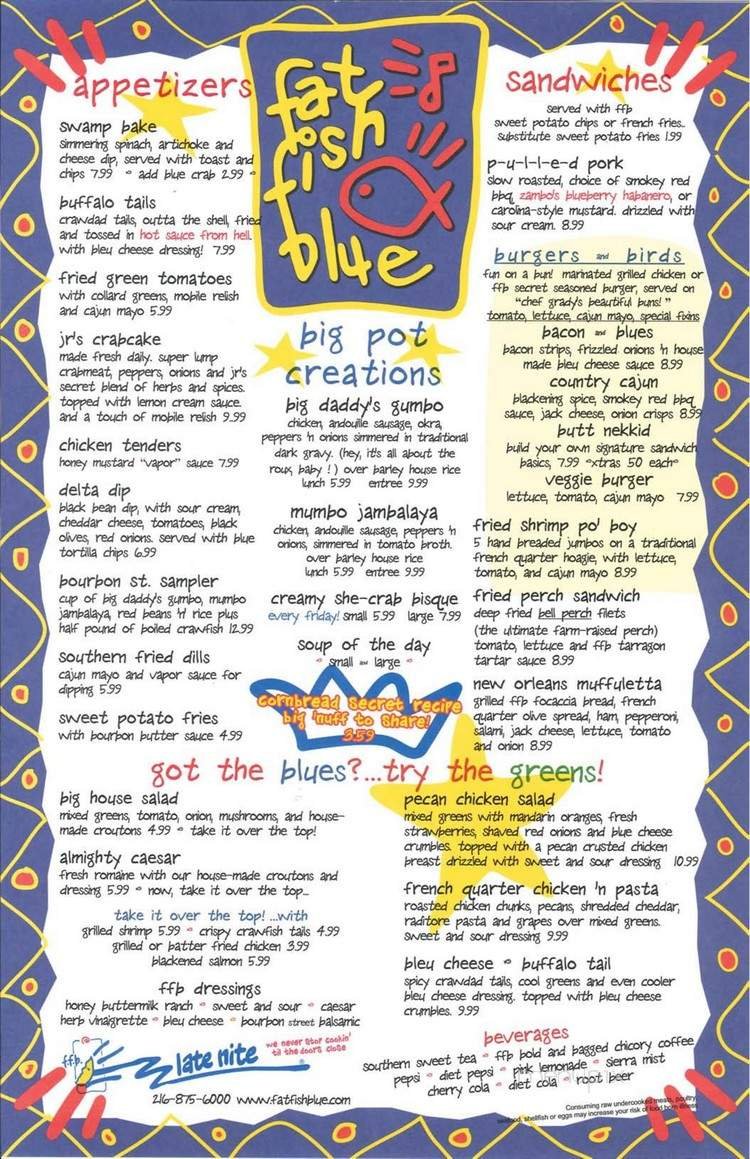 appetizers
swamp bake
simmering spinach, artichoke and
cheese dip, served with toast and
chips 7.99 • add blue crab 2.99 •
buffalo tails
crawdad tails, outta the shell, fried
and tossed in hot sauce from hell
with bleu cheese dressing! 7.99
fried green tomatoes
with collard greens, mobile relish
and cajun mayo 5.99
jr's crabcake
made fresh daily. super lump
crabmeat, peppers, onions and jr's
secret blend of herbs and spices.
topped with lemon cream sauce.
and a touch of mobile relish 9.99
chicken tenders
honey mustard "vapor" sauce 7.99
delta dip
black bean dip, with sour cream,
cheddar cheese, tomatoes, black
olives, red onions. served with blue
tortilla chips 6.99
bourbon st. sampler
cup of big daddy's gumbo, mumbo
jambalaya, red beans 'n' rice plus
half pound of boiled crawfish 12.99
southern fried dills
cajun mayo and vapor sauce for
dipping 5.99
sweet potato fries
with bourbon butter sauce 4.99
fat
fish
blue
big pot
creations
big daddy's gumbo
chicken, andouille sausage, okra,
peppers 'n onions simmered in traditional
dark gravy. (hey, it's all about the
roux, baby ! ) over barley house rice
lunch 5.99 entree 9.99
mumbo jambalaya
chicken, andouille sausage, peppers 'n
onions, simmered in tomato broth.
over barley house rice
lunch 5.99 entree 9.99
creamy she-crab bisque
every friday! small 5.99 large 7.99
soup of the day
• small and large •
cornbread secret recipe
big 'nuff to share!
3.59
sandwiches
served with ffb
sweet potato chips or french fries..
substitute sweet potato fries 1.99
p-u-l-l-e-d pork
slow roasted, choice of smokey red
bbq, zambo's blueberry habanero, or
carolina-style mustard. drizzled with
sour cream. 8.99
burgers and birds
fun on a bun! marinated grilled chicken or
ffb secret seasoned burger, served on
"chef grady's beautiful buns! "
tomato, lettuce, cajun mayo, special fixins
bacon and blues
bacon strips, frizzled onions 'n house
made bleu cheese sauce 8.99
country cajun
blackening spice, smokey red bbq
sauce, jack cheese, onion crisps 8.99
butt nekkid
build your own signature sandwich
basics, 7.99 •xtras .50 each•
veggie burger
lettuce, tomato, cajun mayo 7.99
fried shrimp po' boy
5 hand breaded jumbos on a traditional
french quarter hoagie, with lettuce,
tomato, and cajun mayo 8.99
fried perch sandwich
deep fried bell perch filets
(the ultimate farm-raised perch)
tomato, lettuce and ffb tarragon
tartar sauce 8.99
new orleans muffuletta
grilled ffb focaccia bread, french
quarter olive spread, ham, pepperoni,
salami, jack cheese, lettuce, tomato
and onion 8.99
got the blues?...try the greens!
big house salad
mixed greens, tomato, onion, mushrooms, and house-
made croutons 4.99 • take it over the top!
almighty caesar
fresh romaine with our house-made croutons and
dressing 5.99 • now, take it over the top...
take it over the top! ...with
grilled shrimp 5.99 • crispy crawfish tails 4.99
grilled or batter fried chicken 3.99
blackened salmon 5.99
ffb dressings
honey buttermilk ranch • sweet and sour • caesar
herb vinaigrette • bleu cheese • bourbon street balsamic
pecan chicken salad
mixed greens with mandarin oranges, fresh
strawberries, shaved red onions and blue cheese
crumbles. topped with a pecan crusted chicken
breast drizzled with sweet and sour dressing 10.99
french quarter chicken 'n pasta
roasted chicken chunks, pecans, shredded cheddar,
raditore pasta and grapes over mixed greens.
sweet and sour dressing 9.99
bleu cheese • buffalo tail
spicy crawdad tails, cool greens and even cooler
bleu cheese dressing. topped with bleu cheese
crumbles. 9.99
beverages
southern sweet tea • ffb bold and bagged chicory coffee
pepsi • diet pepsi • pink lemonade • sierra mist
cherry cola • diet cola • root beer
f.f.b.
late nite
we never stop cookin'
'til the doors close
216-875-6000 www.fatfishblue.com
Consuming raw undercooked meats, poultry,
seafood, shellfish or eggs may increase your risk of food born illness